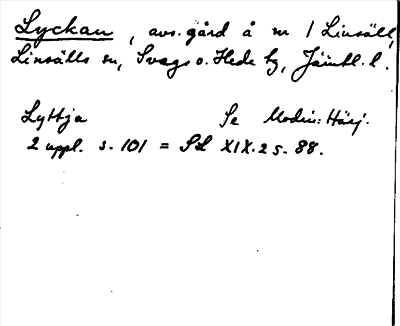 Lyckan, avs. gård å nr 1 Linsäll,
Linsälls sn, Svegs o. Hede tg, Jämtl. l.
Lyttja Se Modin: Härj.
2 uppl. s. 101 = SL XIX.2 s. 88.